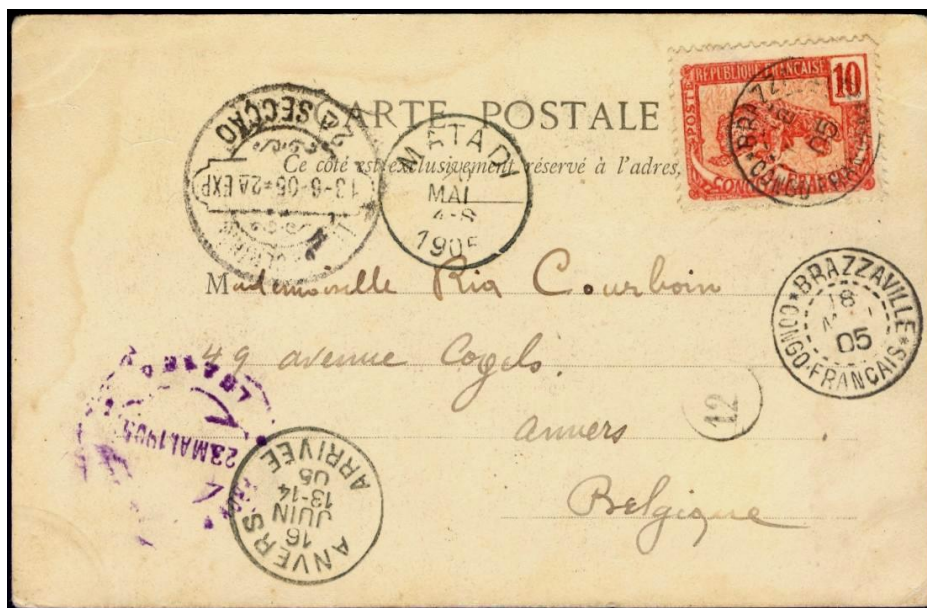 CARTE POSTALE
Ce côté est exclusivement réservé à l'adres
RÉPUBLIQUE FRANÇAISE
10
POSTES
BRAZZ
05
2ª SECÇÃO
13-6-05=2ª EXP
MATADI
MAI
4-8
1905
BRAZZAVILLE
18
05
CONGO-FRANÇAIS
Mademoiselle Ria Courboin
49 avenue Cogels.
Anvers
Belgique
12
23 MAI 1905
ANVERS
16
JUIN
13-14
05
ARRIVÉE